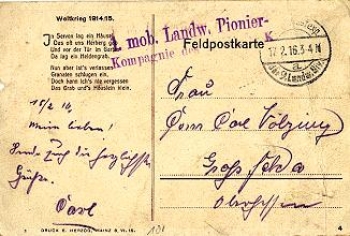 Weltkrieg 1914.15.
In Serven lag ein Häuschen
Das oft uns Herberg
Und vor der Tür im Garten
Da lag ein Heldengrab.
Nun aber ist's verlassen
Granaten schlugen ein,
Doch kann ich's nie vergessen
Das Grab und's Häuslein klein.
mob. Landw. Pionier-
Kompagnie des K
Feldpostkarte
17.2.16.3-4N
Frau
Carl
Groß
Oberhessen
15/2 16
Meine Lieben!
Sende Euch die herzlichsten
Grüße.
Carl
3 DRUCK E. HERZOG, MAINZ 8.11.15.
101
4